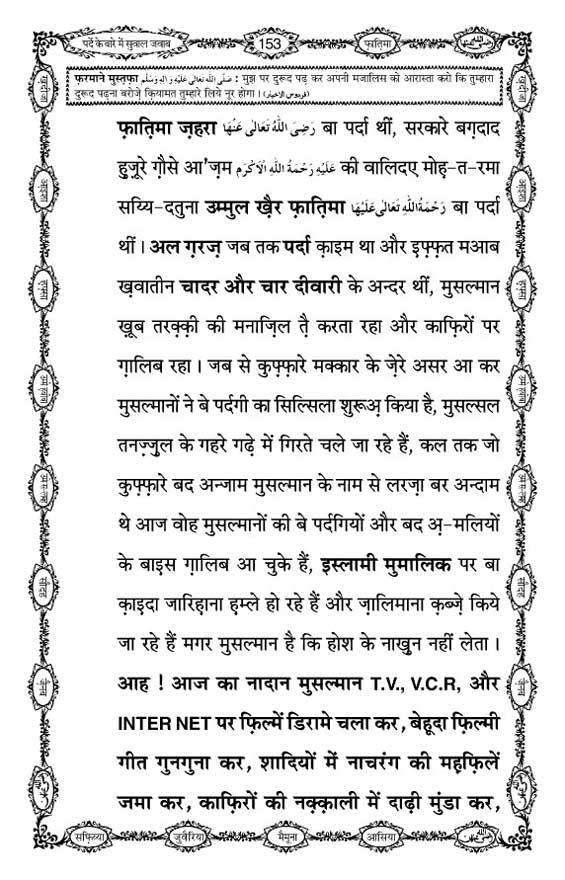 पर्दे के बारे में सुवाल जवाब 153 फ़ातिमा
फ़रमाने मुस्तफ़ा صَلَّى اللهُ تَعَالٰى عَلَيْهِ وَاٰلِهٖ وَسَلَّم : मुझ पर दुरूद पढ़ कर अपनी मजालिस को आरास्ता करो कि तुम्हारा
दुरूद पढ़ना बरोज़े क़ियामत तुम्हारे लिये नूर होगा। (فردوس الاخبار)
फ़ातिमा ज़हरा رَضِىَ اللهُ تَعَالٰى عَنْهَا बा पर्दा थीं, सरकारे बग़दाद
हुज़ूरे ग़ौसे आ'ज़म عَلَيْهِ رَحْمَةُ اللهِ الْاَكْرَم की वालिदए मोह़-त-रमा
सय्यि-दतुना उम्मुल ख़ैर फ़ातिमा رَحْمَةُ اللهِ تَعَالٰى عَلَيْهَا बा पर्दा
थीं। अल ग़रज़ जब तक पर्दा क़ाइम था और इफ़्फ़त मआब
ख़वातीन चादर और चार दीवारी के अन्दर थीं, मुसल्मान
ख़ूब तरक़्क़ी की मनाज़िल त़ै करता रहा और काफ़िरों पर
ग़ालिब रहा। जब से कुफ़्फ़ारे मक्कार के ज़ेरे असर आ कर
मुसल्मानों ने बे पर्दगी का सिल्सिला शुरूअ़ किया है, मुसल्सल
तनज़्ज़ुल के गहरे गढ़े में गिरते चले जा रहे हैं, कल तक जो
कुफ़्फ़ारे बद अन्जाम मुसल्मान के नाम से लरज़ा बर अन्दाम
थे आज वोह मुसल्मानों की बे पर्दगियों और बद अ़-मलियों
के बाइस ग़ालिब आ चुके हैं, इस्लामी मुमालिक पर बा
क़ाइदा जारिह़ाना ह़म्ले हो रहे हैं और ज़ालिमाना क़ब्ज़े किये
जा रहे हैं मगर मुसल्मान है कि होश के नाख़ुन नहीं लेता।
आह ! आज का नादान मुसल्मान T.V., V.C.R, और
INTER NET पर फ़िल्में डिरामे चला कर, बेहूदा फ़िल्मी
गीत गुनगुना कर, शादियों में नाचरंग की मह़फ़िलें
जमा कर, काफ़िरों की नक़्क़ाली में दाढ़ी मुंडा कर,
सफ़िय्या जुवैरिया मैमूना आसिया